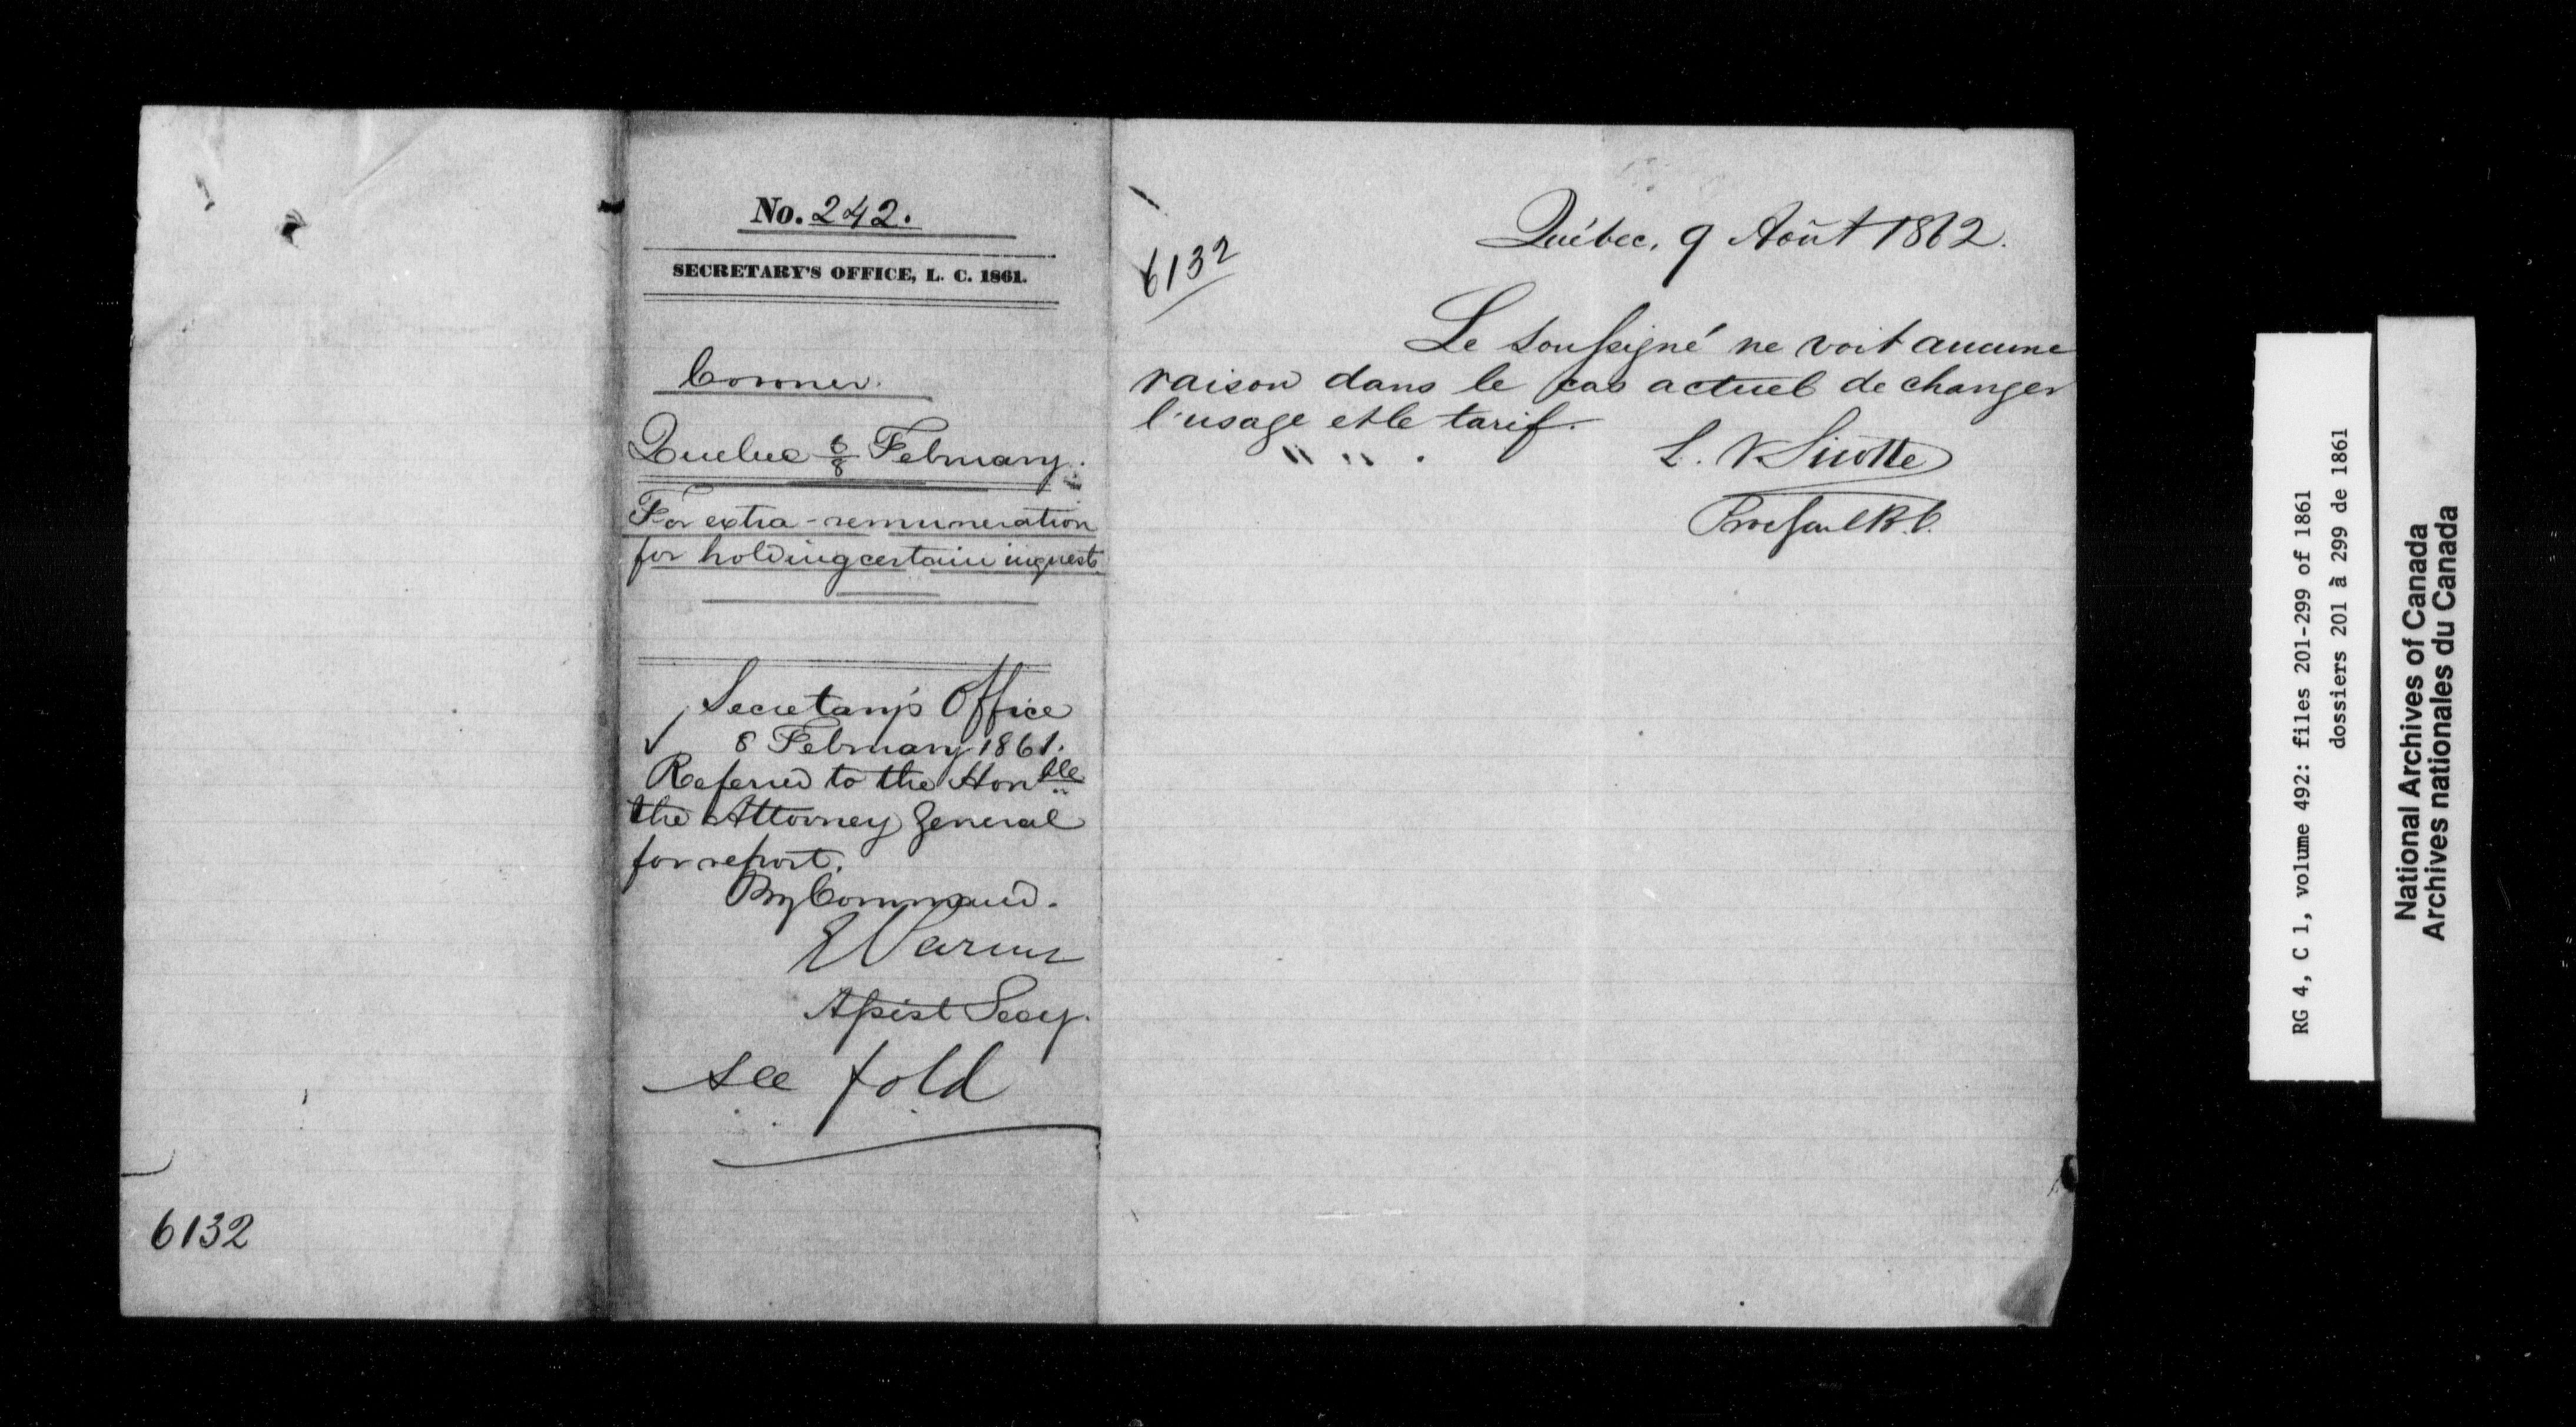 6132
No. 242.
SECRETARY'S OFFICE, L. C. 1861.
Coroner.
Quebec 6/8 February.
For extra-remuneration
for holding certain inquests
Secretary's Office
8 February 1861.
Referred to the Honble
the Attorney General
for report.
By Command.
E Parent
Assist Secy.
see fold
6132
Québec, 9 Août 1862.
Le Soussigné ne voit aucune
raison dans le cas actuel de changer
l'usage et le tarif.
L. V. Sicotte
RG 4, C 1, volume 492: files 201-299 of 1861
dossiers 201 à 299 de 1861
National Archives of Canada
Archives nationales du Canada